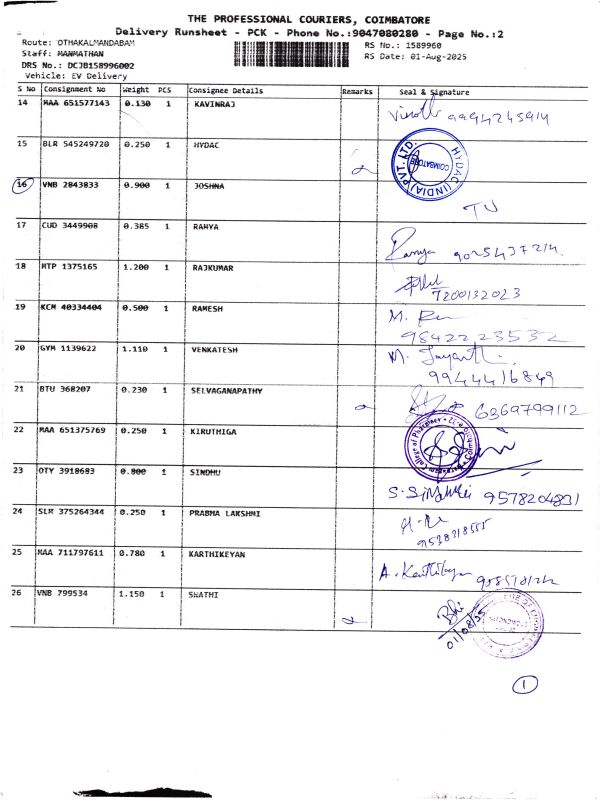 THE PROFESSIONAL COURIERS, COIMBATORE
Delivery Runsheet - PCK - Phone No.:9047080280 - Page No.:2
Route: OTHAKALMANDABAM
RS No.: 1589960
Staff: MANMATHAN
RS Date: 01-Aug-2025
DRS No.: DCJB158996002
Vehicle: EV Delivery
S No Consignment No Weight PCS Consignee Details Remarks Seal & Signature
14 MAA 651577143 0.130 1 KAVINRAJ
15 BLR 545249720 0.250 1 HYDAC
HYDAC (INDIA) PVT. LTD. COIMBATORE
16 VNB 2843833 0.900 1 JOSHNA
17 CUD 3449908 0.385 1 RAMYA
Ramya
18 MTP 1375165 1.200 1 RAJKUMAR
7200132023
19 KCM 40334404 0.500 1 RAMESH
9842223532
20 GYM 1139622 1.110 1 VENKATESH
9944416849
21 BTU 368207 0.230 1 SELVAGANAPATHY
6369799112
22 MAA 651375769 0.250 1 KIRUTHIGA
College of Pharmacy
23 OTY 3918683 0.800 1 SINDHU
9578204831
24 SLR 375264344 0.250 1 PRABHA LAKSHMI
25 MAA 711797611 0.780 1 KARTHIKEYAN
A. Karthikeyan
26 VNB 799534 1.150 1 SWATHI
1